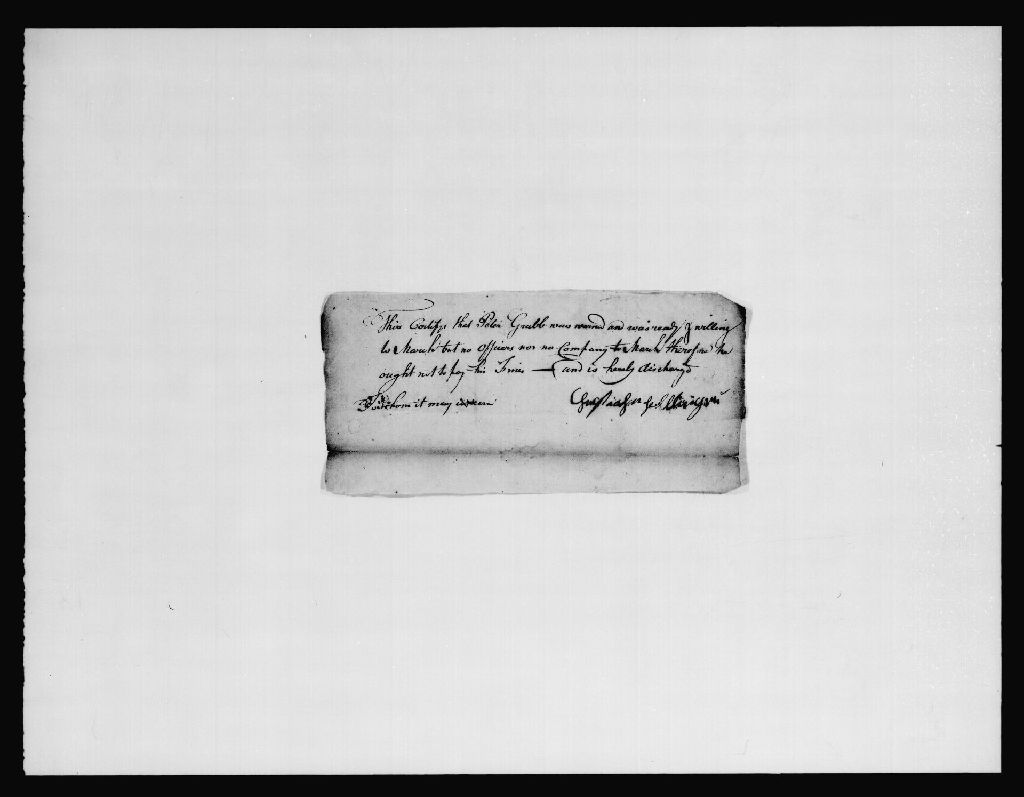 This Certifys that Peter Grubb was warned and was ready & willing
to March but no Officers nor no Company to March therefore he
ought not to pay his Fines — and is hereby discharged
To whom it may